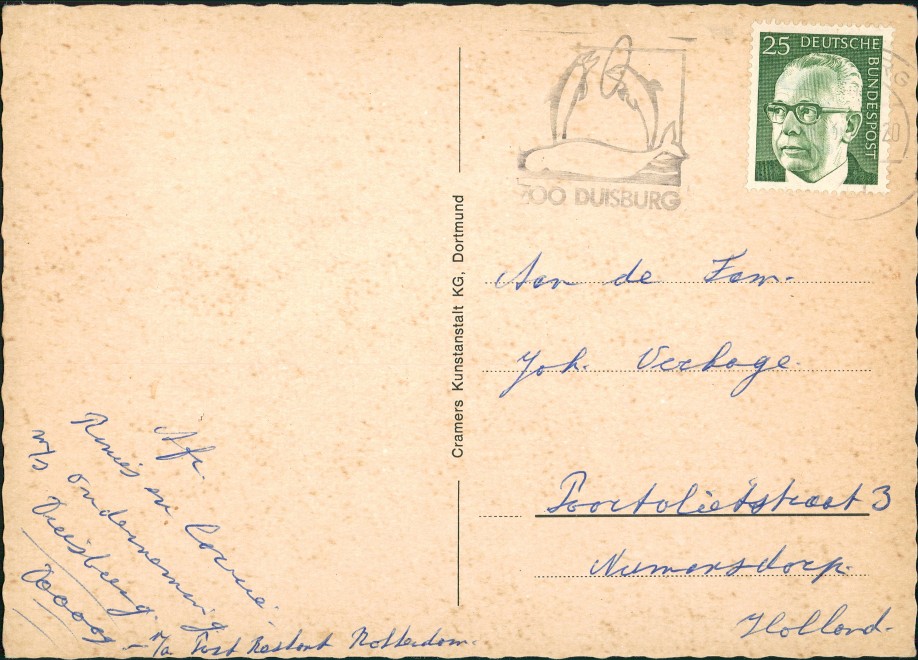 25 DEUTSCHE BUNDESPOST
20
ZOO DUISBURG
Cramers Kunstanstalt KG, Dortmund
Aan de Fam.
Joh. Verhage.
3
Numansdorp.
Holland.
Afz.
en Corrie.
m/s onderneming
Duisburg.
p/a Post Restant Rotterdam.